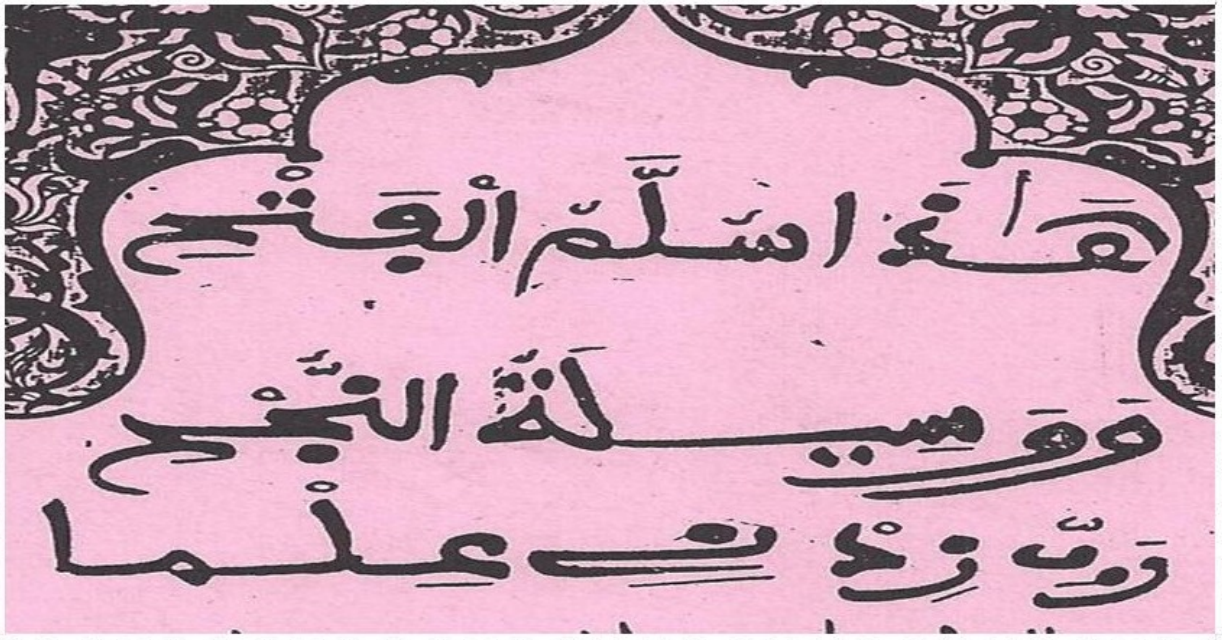 هَٰذَا سُلَّمُ الْفَتْحِ
وَوَسِيلَةُ النُّجْحِ
رَبِّ زِدْنِے عِلْما